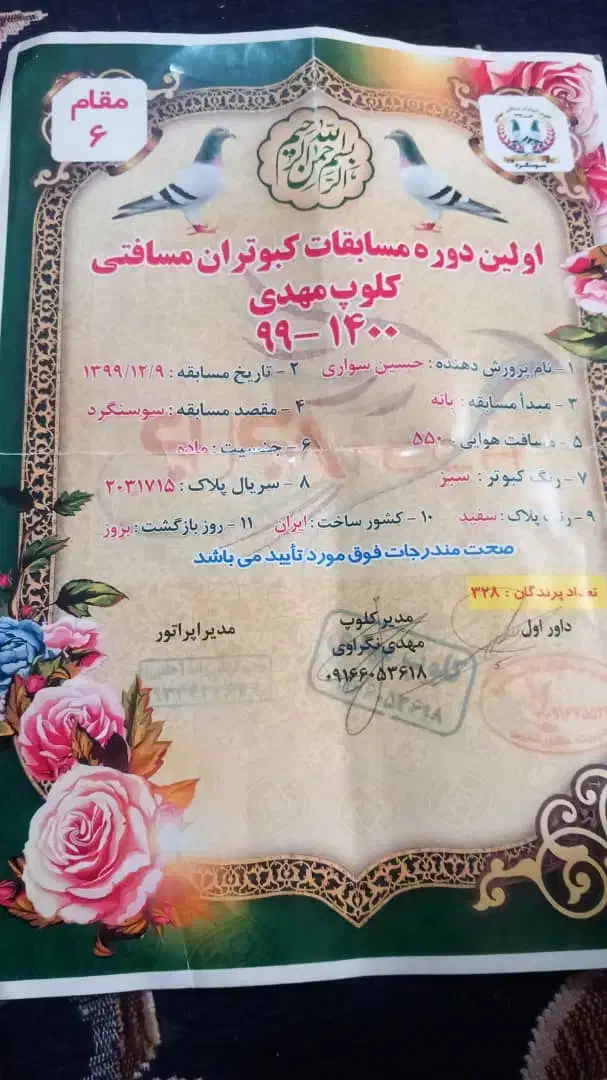 مقام
۶
بسم الله الرحمن الرحیم
اولین دوره مسابقات کبوتران مسافتی
کلوپ مهدی
۹۹ - ۱۴۰۰
۱ - نام پرورش دهنده : حسین سواری ۲ - تاریخ مسابقه : ۱۳۹۹/۱۲/۹
۳ - مبدأ مسابقه : بانه ۴ - مقصد مسابقه : سوسنگرد
۵ - مسافت هوایی : ۵۵۰ ۶ - جنسیت : ماده
۷ - رنگ کبوتر : سبز ۸ - سریال پلاک : ۲۰۳۱۷۱۵
۹ - رنگ پلاک : سفید ۱۰ - کشور ساخت : ایران ۱۱ - روز بازگشت : بروز
صحت مندرجات فوق مورد تأیید می باشد
تعداد پرندگان : ۳۲۸
داور اول مدیر کلوپ مدیر اپراتور
مهدی نگراوی
۰۹۱۶۶۰۵۳۶۱۸